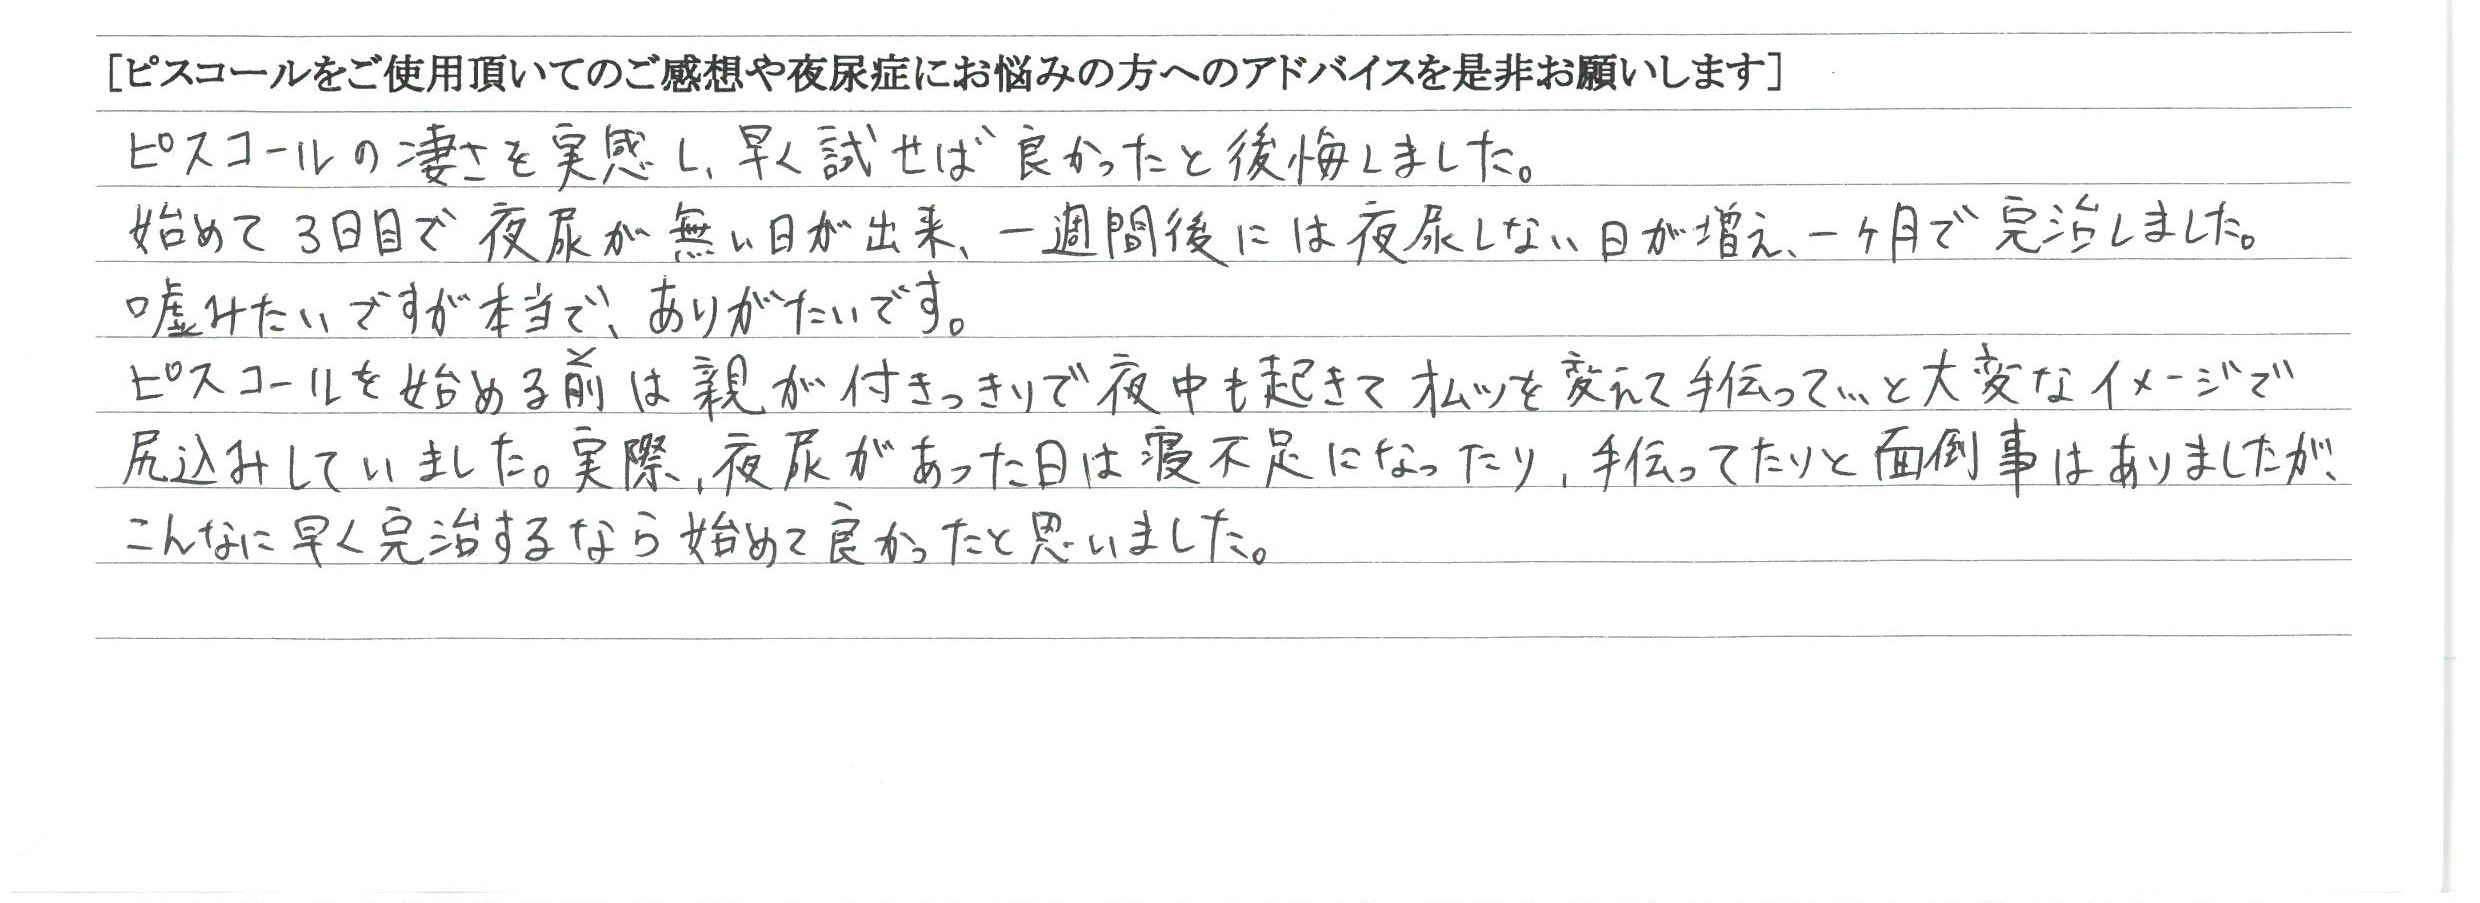 [ピスコールをご使用頂いてのご感想や夜尿症にお悩みの方へのアドバイスを是非お願いします]
ピスコールの凄さを実感し、早く試せば良かったと後悔しました。
始めて3日目で夜尿が無い日が出来、一週間後には夜尿しない日が増え、一ヶ月で完治しました。
嘘みたいですが本当で、ありがたいです。
ピスコールを始める前は親が付きっきりで夜中も起きてオムツを変えて手伝って…と大変なイメージで
尻込みしていました。実際、夜尿があった日は寝不足になったり、手伝ってたりと面倒事はありましたが、
こんなに早く完治するなら始めて良かったと思いました。